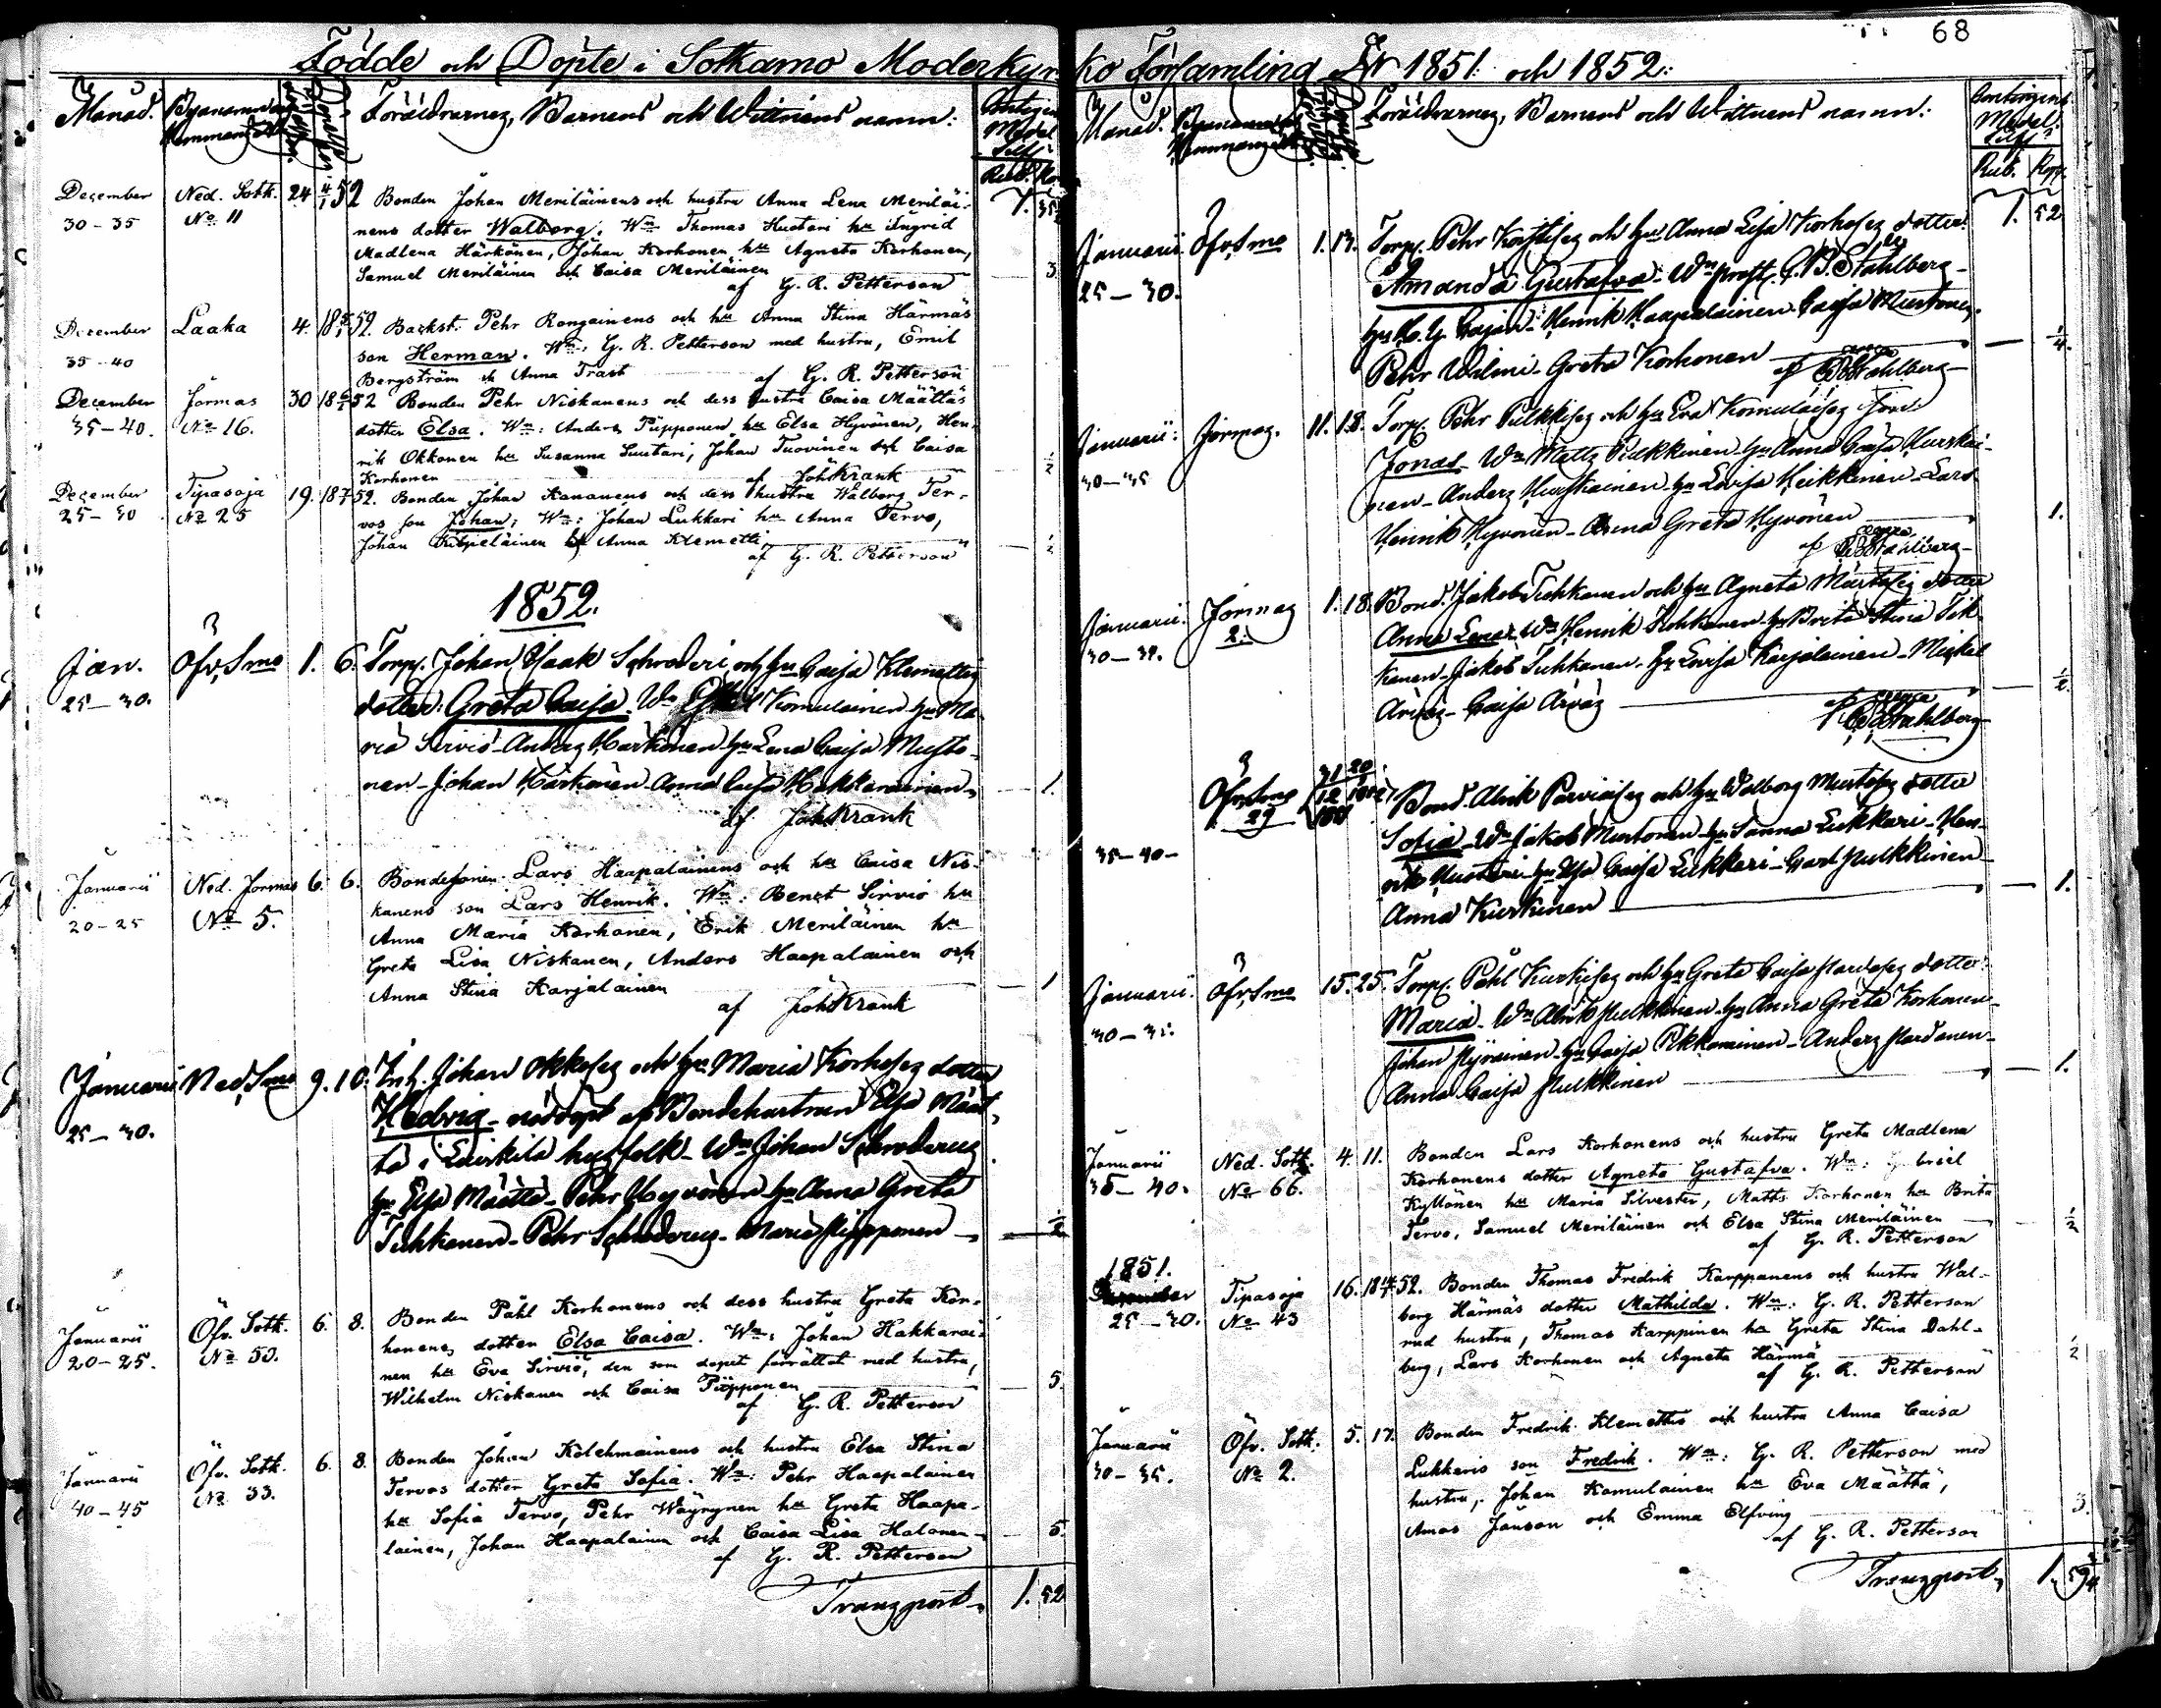 68
Födde och Döpte i Sotkamo Moderkyrko Församling År 1851. och 1852.
Månad. Föräldrarnes, Barnens och Wittnens namn:
Rub. Ko
December Ned. Sotk. 24 4/1 52 Bonden Johan Meriläinens och hustru Anna Lena Meriläi- 7. 35
30-35 No 11 nens dotter Walborg. Wn Thomas Huotari hu Ingrid
Madlena Härkönen, Johan Korhonen hu Agneta Korhonen,
Samuel Meriläinen och Caisa Meriläinen 3
af G. R. Petterson
December Laaka 4. 18 5/1 52. Backst. Pehr Rongainens och hu Anna Stina Härmäs
35-40 son Herman. Wn: G. R. Petterson med hustru, Emil
Bergström och Anna Trast af G. R. Petterson
December Jormas 30 18 6/1 52 Bonden Pehr Niskanens och dess hustru Caisa Määttäs
35-40. No 16. dotter Elsa. Wn: Anders Piipponen hu Elsa Hyvönen, Hen-
rik Okkonen hu Susanna Suutari, Johan Tuovinen och Caisa
Korhonen af Joh Krank 1/2
December Tipasoja 19. 18 7/1 52. Bonden Johan Kananens och dess hustru Walborg Ter-
25-30 No 25 vos son Johan; Wn: Johan Lukkari hu Anna Tervo,
Johan Kilpeläinen och Anna Klemetti 1/2
af G. R. Petterson
1852.
Jan. Öfv. Smo 1. 6. Torp. Johan Isaak Schroderi och hu Caisa Klemettis
25-30. dotter. Greta Caisa. Wn Komulainen hu Ma-
ria Sirviö - Anders Härkönen hu Lena Caisa Musto-
nen - Johan Härkönen Anna Caisa Hakkarainen 1.
af Joh Krank
Januarii Ned. Jormas 6. 6. Bondesonen Lars Haapalainens och hu Caisa Nis-
20-25 No 5. kanens son Lars Henrik. Wn: Benet Sirviö hu
Anna Maria Korhonen, Erik Meriläinen hu
Greta Lisa Niskanen, Anders Haapalainen och
Anna Stina Karjalainen 1
af Joh Krank
Januarii Ned. Smo 9. 10. Inh. Johan Okkoses och hu Maria Korhoses dotter
25-30. Hedvig - nöddöpt af Bondehustrun Elsa Määt-
tä i husfolk - Wn Johan Schroderus
hu Elsa Määttä - Pehr Hyvönen hu Anna Greta
Tuhkanen - Pehr Schroderus - Maria Piipponen 1/2
Januarii Öfv. Sotk. 6. 8. Bonden Påhl Korhonens och dess hustru Greta Kor-
20-25. No 53. honens dotter Elsa Caisa. Wn: Johan Hakkarai-
nen hu Eva Sirviö, den som dopet förrättat med hustru,
Wilhelm Niskanen och Caisa Piipponen 5.
af G. R. Petterson
Januarii Öfv. Sotk. 6. 8. Bonden Johan Kolehmainens och hustru Elsa Stina
40-45 No 33. Tervos dotter Greta Sofia. Wn: Pehr Haapalainen
hu Sofia Tervo, Pehr Wäyrynen hu Greta Haapa-
lainen, Johan Haapalainen och Caisa Lisa Halonen 5.
af G. R. Petterson
Transport 1. 52
Månad. Föräldrarnes, Barnens och Wittnens namn:
Rub. Kop.
Januarii Öfv. Smo 1. 17. Torp. Pehr och hu Anna Lisa Korhoses dotter 1. 52
25-30. Amanda Gustafva. Wn prost. Stahlberg -
Cajan - Henrik Haapalainen Caisa Mustonen
Pehr Walmi - Greta Korhonen 1/4
af Stahlberg
Januarii Jormas. 11. 18. Torp. Pehr Pulkkises och hu Eva Komulaises son
30-35 Jonas - Wn Matts Pulkkinen hu Anna Caisa Hurskai-
nen - Anders Hurskainen hu Lovisa Heikkinen - Lars
Henrik Hyvönen - Anna Greta Hyvönen 1.
af Stahlberg
Januarii Jormas 1. 18. Bond. Jakob Tuhkanen och hu Agneta dotter
30-32. 2. Anna Lena. Wn Henrik hu Brita Stina Tik-
kanen - Jakob Tuhkanen - hu Lovisa Karjalainen - Mickel
Caisa 1/2
af Stahlberg
Öfv. Smo 31/12 20 Bond. Alrik Parviaises och hu Walborg Mustoses dotter
29 Sofia - Wn Jakob Mustonen hu Sanna Lukkari - Hen-
35-40 rik Huotari hu Elsa Caisa Lukkari - Carl Pulkkinen
Anna Kurkinen 1.
Januarii. Öfv. Smo 15. 25. Torp. Påhl Kurkises och hu Greta Caisa dotter
30-35. Maria - Wn Alrik Pulkkinen hu Anna Greta Korhonen
Johan hu Caisa Pikkarainen - Anders
Anna Caisa Pulkkinen 1.
Januarii Ned. Sotk. 4. 11. Bonden Lars Korhonens och hustru Greta Madlena
35-40. No 66. Korhonens dotter Agneta Gustafva. Wn: briel
Kyllönen hu Maria Silvester, Matts Korhonen hu Brita
Tervo, Samuel Meriläinen och Elsa Stina Meriläinen 1/2
af G. R. Petterson
1851.
December Tipasoja 16. 18 52. Bonden Thomas Fredrik Karppanens och hustru Wal-
25-30. No 43 borg Härmäs dotter Mathilda. Wn: G. R. Petterson
med hustru, Thomas Karppinen hu Greta Stina Dahl-
berg, Lars Korhonen och Agneta Härmä 2
af G. R. Petterson
Januarii Öfv. Sotk. 5. 17. Bonden Fredrik Klemettis och hustru Anna Caisa
30-35. No 2. Lukkaris son Fredrik. Wn: G. R. Petterson med
hustru, Johan Komulainen hu Eva Määttä,
Amos Janson och Emma Elfving 3.
af G. R. Petterson
Transport 1. 59